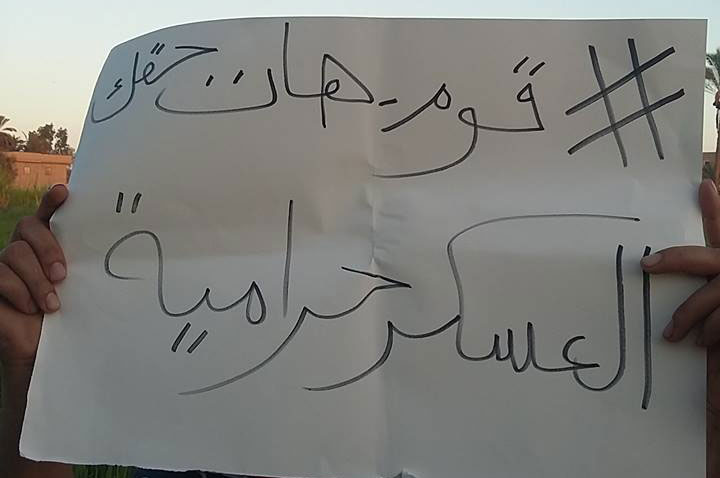 #قوم-هات حقك
العسكر حرامية